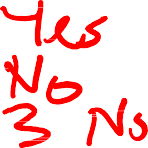 Yes
No
3 No